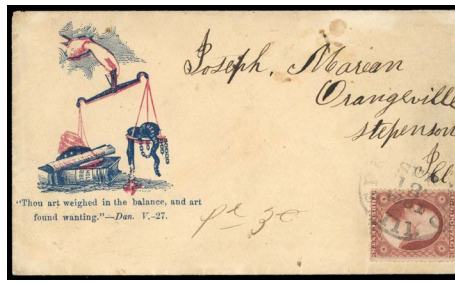 Joseph, Marean
Orangeville
Stepenson
Ill
"Thou art weighed in the balance, and art
found wanting."—Dan. V.-27.